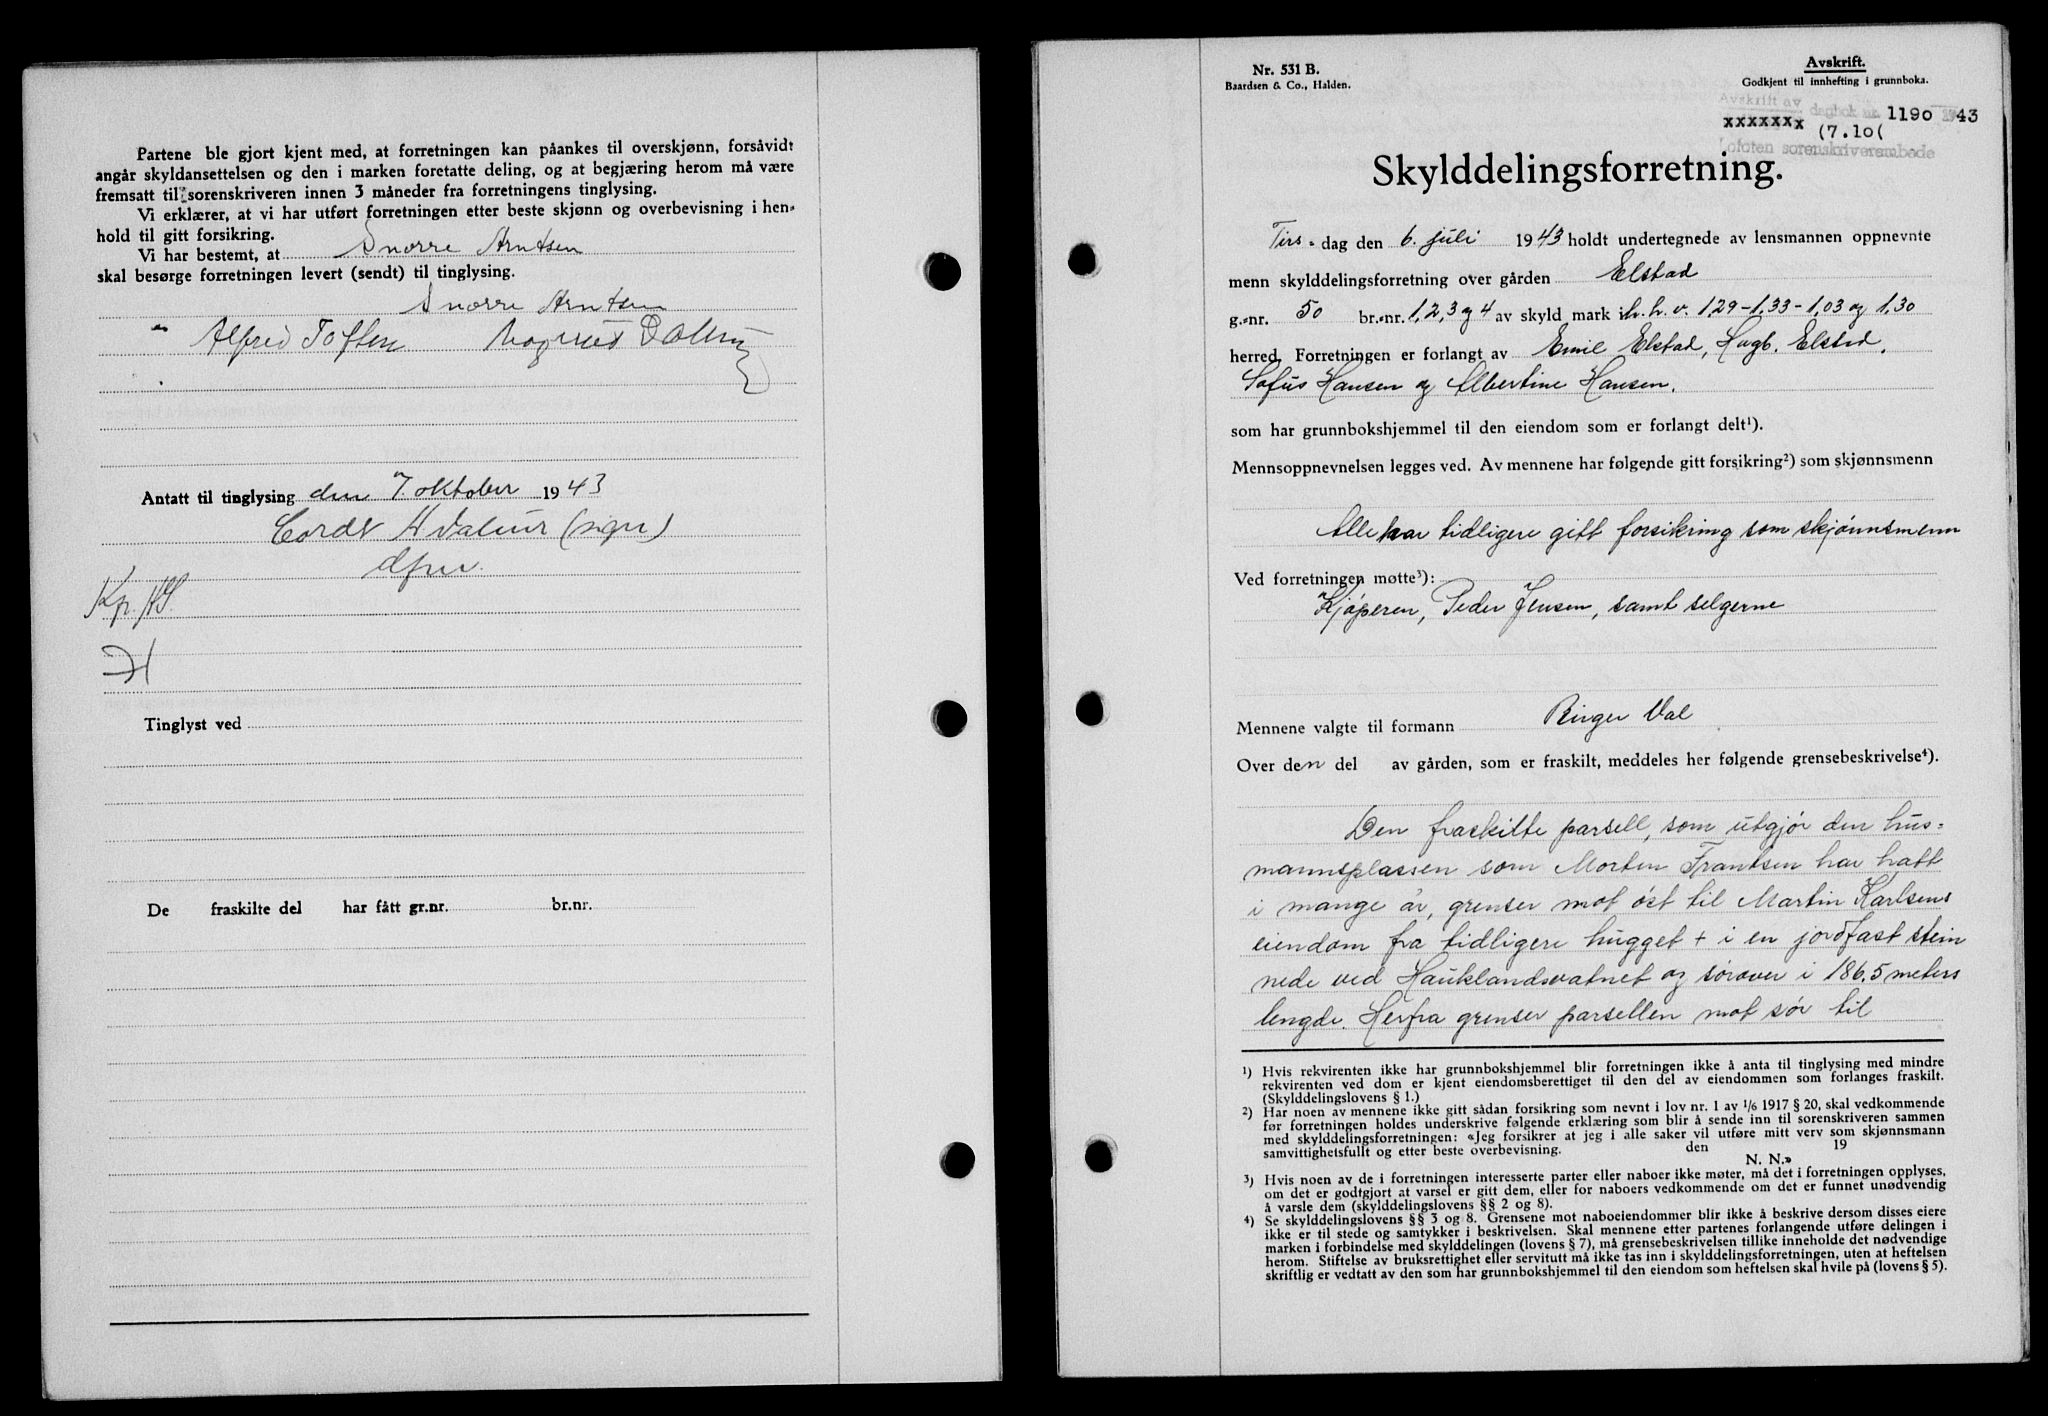 Partene ble gjort kjent med, at forretningen kan påankes til overskjønn, forsåvidt
angår skyldansettelsen og den i marken foretatte deling, og at begjæring herom må være
fremsatt til sorenskriveren innen 3 måneder fra forretningens tinglysing.
Vi erklærer, at vi har utført forretningen etter beste skjønn og overbevisning i hen-
hold til gitt forsikring.
Vi har bestemt, at Snorre Arntsen
skal besørge forretningen levert (sendt) til tinglysing.
Snorre Arntsen
Alfred Toften
Antatt til tinglysing den 7. oktober 1943
(sign)
Tinglyst ved
De fraskilte del har fått gr.nr. br.nr.
Nr. 531 B.
Baardsen & Co., Halden.
Avskrift.
Godkjent til innhefting i grunnboka.
Avskrift av dagbok nr. 1190 1943
xxxxxxx (7.10(
Lofoten sorenskriverembede
Skylddelingsforretning.
Tirs-dag den 6. juli 1943 holdt undertegnede av lensmannen oppnevnte
menn skylddelingsforretning over gården Elstad
g.-nr. 50 br.-nr. 1,2,3 og 4 av skyld mark h.h.v. 1,29-1,33-1,03 og 1,30
herred. Forretningen er forlangt av Emil Elstad, Hagb. Elstad,
Sofus Hansen og Albertine Hansen.
som har grunnbokshjemmel til den eiendom som er forlangt delt¹).
Mennsoppnevnelsen legges ved. Av mennene har følgende gitt forsikring²) som skjønnsmenn
Alle har tidligere gitt forsikring som skjønnsmenn
Ved forretningen møtte³):
Kjøperen, Peder Jensen, samt selgerne
Mennene valgte til formann Birger Val
Over den del av gården, som er fraskilt, meddeles her følgende grensebeskrivelse⁴).
Den fraskilte parsell, som utgjør den hus=
mannsplassen som Morten Frantsen har hatt
i mange år, grenser mot øst til Martin Karlsens
eiendom fra tidligere hugget + i en jordfast stein
nede ved Hauklandsvatnet og sørover i 186.5 meters
lengde. Herfra grenser parsellen mot sør til
¹) Hvis rekvirenten ikke har grunnbokshjemmel blir forretningen ikke å anta til tinglysing med mindre
rekvirenten ved dom er kjent eiendomsberettiget til den del av eiendommen som forlanges fraskilt.
(Skylddelingslovens § 1.)
²) Har noen av mennene ikke gitt sådan forsikring som nevnt i lov nr. 1 av 1/6 1917 § 20, skal vedkommende
før forretningen holdes underskrive følgende erklæring som blir å sende inn til sorenskriveren sammen
med skylddelingsforretningen: «Jeg forsikrer at jeg i alle saker vil utføre mitt verv som skjønnsmann
samvittighetsfullt og etter beste overbevisning. den 19
N. N.»
³) Hvis noen av de i forretningen interesserte parter eller naboer ikke møter, må det i forretningen opplyses,
om det er godtgjort at varsel er gitt dem, eller for naboers vedkommende om det er funnet unødvendig
å varsle dem (skylddelingslovens §§ 2 og 8).
⁴) Se skylddelingslovens §§ 3 og 8. Grensene mot naboeiendommer blir ikke å beskrive dersom disses eiere
ikke er til stede og samtykker i beskrivelsen. Skal mennene etter partenes forlangende utføre delingen i
marken i forbindelse med skylddelingen (lovens § 7), må grensebeskrivelsen tillike inneholde det nødvendige
herom. Stiftelse av bruksrettighet eller servitutt må ikke tas inn i skylddelingsforretningen, uten at heftelsen
skriftlig er vedtatt av den som har grunnbokshjemmel til den eiendom som heftelsen skal hvile på (lovens § 5).